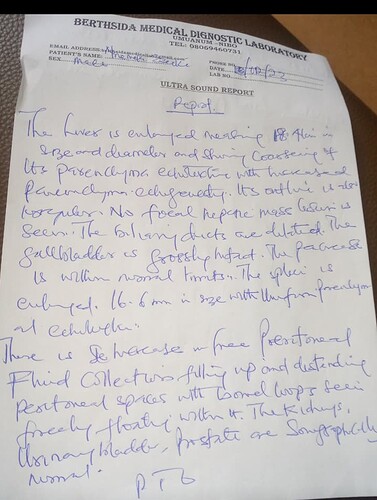 BERTHSIDA MEDICAL DIGNOSTIC LABORATORY
UMUANUM-NIBO
TEL: 08069460731
EMAIL ADDRESS:
PHONE NO
PATIENT'S NAME:
DATE
SEX Male
LAB NO
ULTRA SOUND REPORT
Report
The Liver is enlarged measuring 18.4cm in
size and diameter and showing coarsening of
Its parenchyma echotexture with increased
parenchyma echogenecity. Its outline is also
irregular. No focal hepatic mass lesion is
seen. The biliary ducts are dilated. The
gallbladder is grossly intact. The pancrease
is within normal limits. The spleen is
enlarged, 16.6cm in size with uniform parenchym
al echotexture.
There is increase in free peritoneal
Fluid Collection filling up and distending
peritoneal spaces with bowel loops seen
freely floating within it. The Kidneys,
Urinary bladder, prostate are Sonographically
normal.
PTO